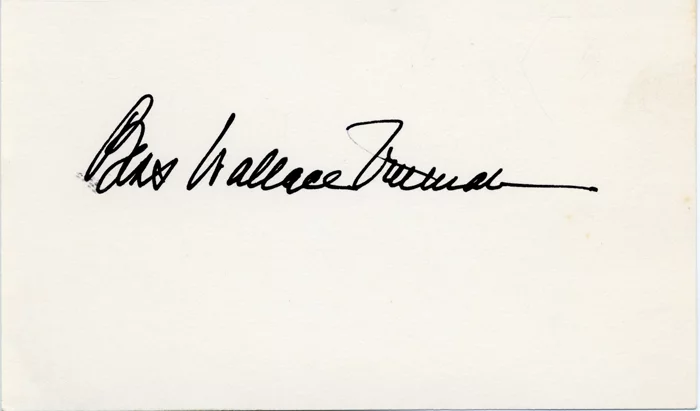 Bess Wallace Truman